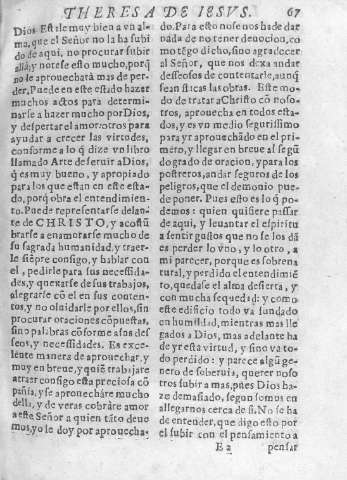 THERESA DE IESVS. 67
Dios. Est ile muy bien a vn al-
ma, que el Señor no la ha subi-
do de aqui, no procurar subir
alla; y notese esto mucho, porq̃
no le aprouechará mas de per-
der. Puede en este estado hazer
muchos actos para determi-
narse a hazer mucho por Dios,
y despertar el amor: otros para
ayudar a crecer las virtudes,
conforme a lo q̃ dize vn libro
llamado Arte de seruir a Dios,
q̃ es muy bueno, y apropiado
para los que estan en este esta-
do, porq̃ obra el entendimien-
to. Puede representarse delan-
te de CHRISTO, y acostũ
brarse a enamorarse mucho de
su sagrada humanidad, y traer-
le siẽpre consigo, y hablar con
el, pedirle para sus necessida-
des, y quexarse de sus trabajos,
alegrarse cõ el en sus conten-
tos, y no oluidarle por ellos, sin
procurar oraciones cõpuestas,
sino palabras cõforme a sus des
seos, y necessidades. Es exce-
lente manera de aprouechar, y
muy en breue, y quiẽ trabajare
a traer consigo esta preciosa cõ
pañia, y se aprouecháre mucho
della, y de veras cobráre amor
a este Señor a quien tãto deue
mos, yo le doy por aprouecha-
do. Para esto no se nos ha de dar
nada de no tener deuocion, co
mo tẽgo dicho, sino agradecer
al Señor, que nos dexa andar
desseosos de contentarle, aunq̃
sean flacas las obras. Este mo-
do de tratar a Christo cõ noso-
tros, aprouecha en todos esta-
dos, y es vn medio segurissimo
para yr aprouechãdo en el pri-
mero, y llegar en breue al segũ
do grado de oracion, y para los
postreros, andar seguros de los
peligros, que el demonio pue-
de poner. Pues esto es lo q̃ po-
demos: quien quisiere passar
de aqui, y leuantar el espiritu
a sentir gustos que no se los dã
es perder lo vno, y lo otro, a
mi parecer, porque es sobrena
tural, y perdido el entendimiẽ
to, quedase el alma desierta, y
con mucha sequedad: y como
este edificio todo va fundado
en humildad, mientras mas lle
gados a Dios, mas adelante ha
de yr esta virtud, y sino va to-
do perdido: y parece algũ ge-
nero de soberuia, querer noso
tros subir a mas, pues Dios ha-
ze demasiado, segun somos en
allegarnos cerca de si. No se ha
de entender, que digo esto por
el subir con el pensamiento a
E 2 pensar